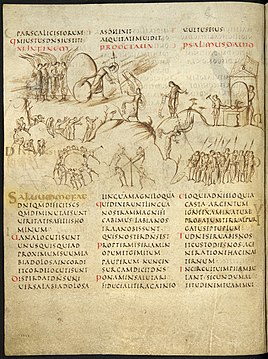 PARSCALICISEORUM
QMIUSTUSDNSIUSTITI
XI INFINEM
ASDILEXI
AEQUITATEMUIDIT
PROOCTAUA
UULTUSEIUS
PSALMUSDAUID
SALUUMMEFAC
DNEQMDEFICITSCS
QMDIMINUTAESUNT
UERITATESAFILIISHO
MINUM
UANALOCUTISUNT
UNUSQUISQUEAD
PROXIMUMSUUMLA
BIADOLOSAINCORDE
ETCORDELOCUTISUNT
DISPERDATDNSUNI
UERSALABIADOLOSA
LINGUAMMAGNILOQUA
QUIDIXERUNTLINGUA
NOSTRAMMAGNIFI
CABIMUSLABIANOS
TRANOBISSUNT
QUISNOSTERDNSEST
PROPTERMISERIAMIN
OPUMETGEMITUM
PAUPERUMNUNCEX
SURGAMDICITDNS
PONAMINSALUTARI
FIDUCIALITERAGAMINEO
ELOQUIADNIELOQUIA
CASTAARGENTUM
IGNEEXAMINATUM
PROBATUMTERRAEPUR
GATUMSEPTUPLUM
TUDNESERUABISNOS
ETCUSTODIESNOSAGE
NERATIONEHACIN
AETERNUM
INCIRCUITUIMPIIAMBU
LANTSECUNDUMAL